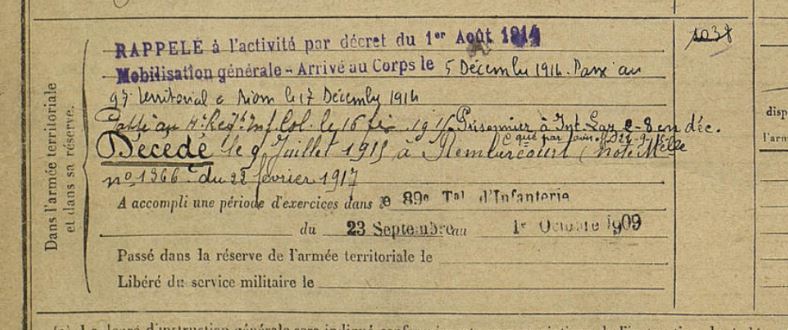 RAPPELÉ à l'activité par décret du 1er Août 1914
1038
Mobilisation générale - Arrivé au Corps le 5 Décembre 1914. Passé au
97 territorial à Riom le 17 Décembre 1914
Passé au 4e Regt Inf Col. le 16 1915 Prisonnier à
Décédé le 9 Juillet 1915 à Rembercourt (note Mlle
no 1366 du 28 février 1917
Dans l'armée territoriale
et dans sa réserve.
A accompli une période d'exercices dans le 89e Tal d'Infanterie
du 23 Septembre au 1er Octobre 1909
Passé dans la réserve de l'armée territoriale le
Libéré du service militaire le
disp
l'arm